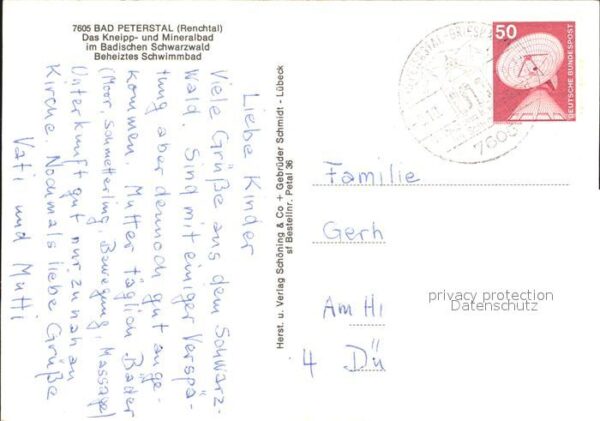 7605 BAD PETERSTAL (Renchtal)
Das Kneipp- und Mineralbad
im Badischen Schwarzwald
Beheiztes Schwimmbad
Liebe Kinder
Viele Grüße aus dem Schwarz-
wald. Sind mit einiger Verspä-
tung aber dennoch gut ange-
kommen. Mutter täglich Bäder
(Moor, Schmetterling, Bewegung, Massage)
Unterkunft gut nur zu nah an
Kirche. Nochmals liebe Grüße
Vati und Mutti
Herst. u. Verlag Schöning & Co + Gebrüder Schmidt - Lübeck
sf Bestellnr. Petal 36
50
DEUTSCHE BUNDESPOST
7605
Familie
Gerh
Am Hi
4 Dü
privacy protection
Datenschutz